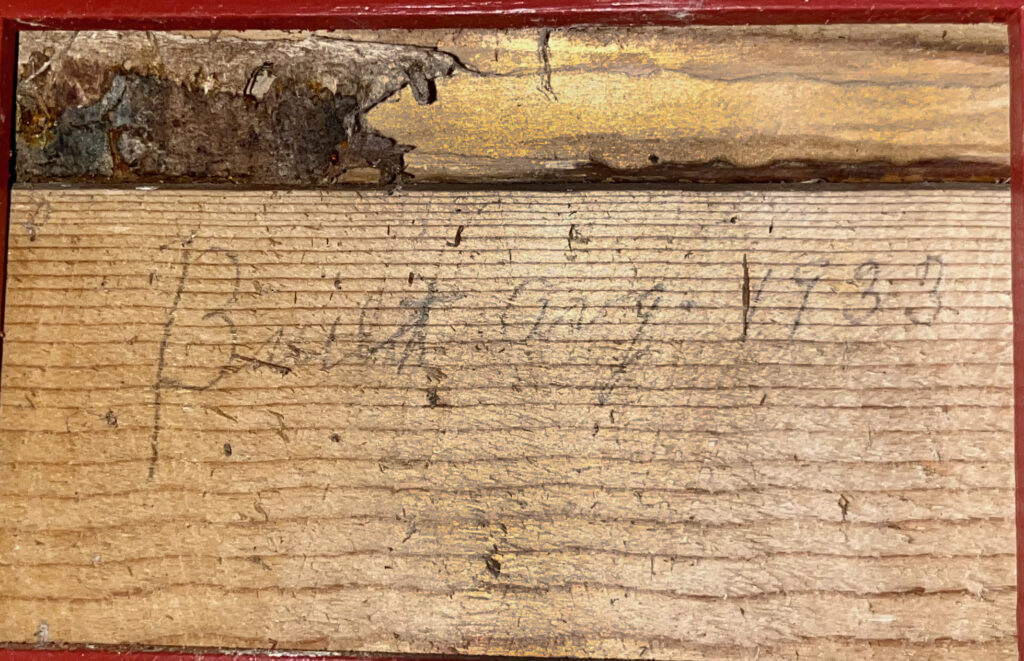 Built Aug. 1733